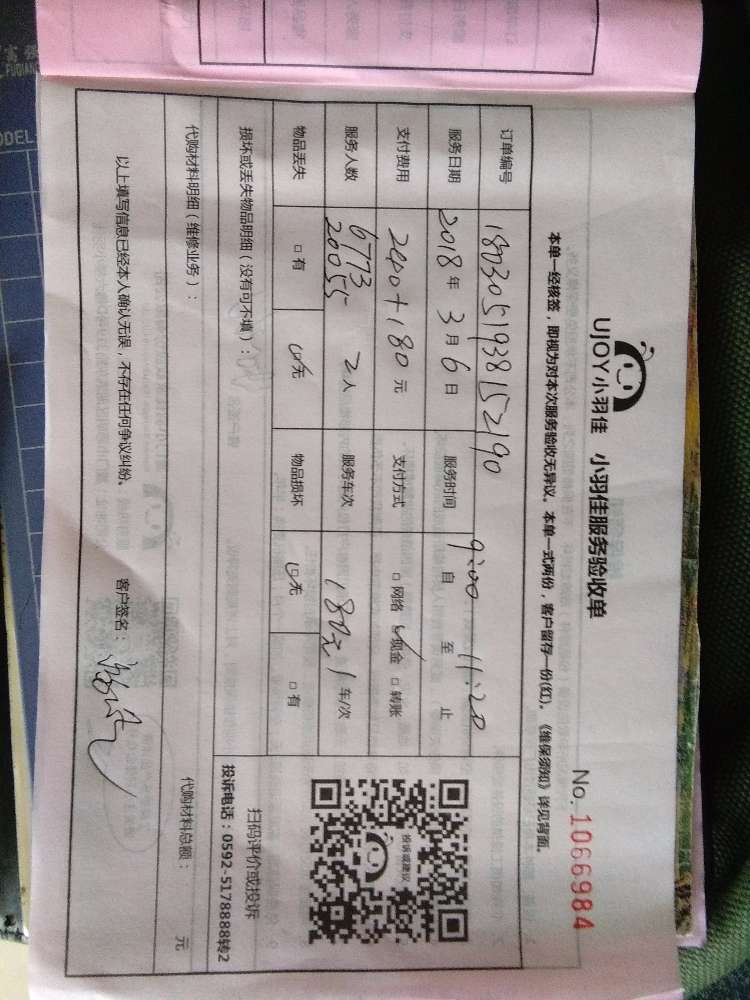 UJOY小羽佳 小羽佳服务验收单
No.1066984
本单一经核签，即视为对本次服务验收无异议。本单一式两份，客户留存一份(红)。《维保须知》详见背面。
订单编号 1803051938152190
服务日期 2018年3月6日 服务时间 9:00 自 至 11:20 止
支付费用 200+180元 支付方式 □网络 ☑现金 □转账
服务人数 6773 20055 2人 服务车次 180元 1车/次
物品丢失 □有 ☑无 物品损坏 ☑无 □有
损坏或丢失物品明细（没有可不填）：
投诉或建议
扫码评价或投诉
投诉电话：0592-5178888转2
代购材料明细（维修业务）：
代购材料总额： 元
以上填写信息已经本人确认无误，不存在任何争议纠纷。 客户签名：